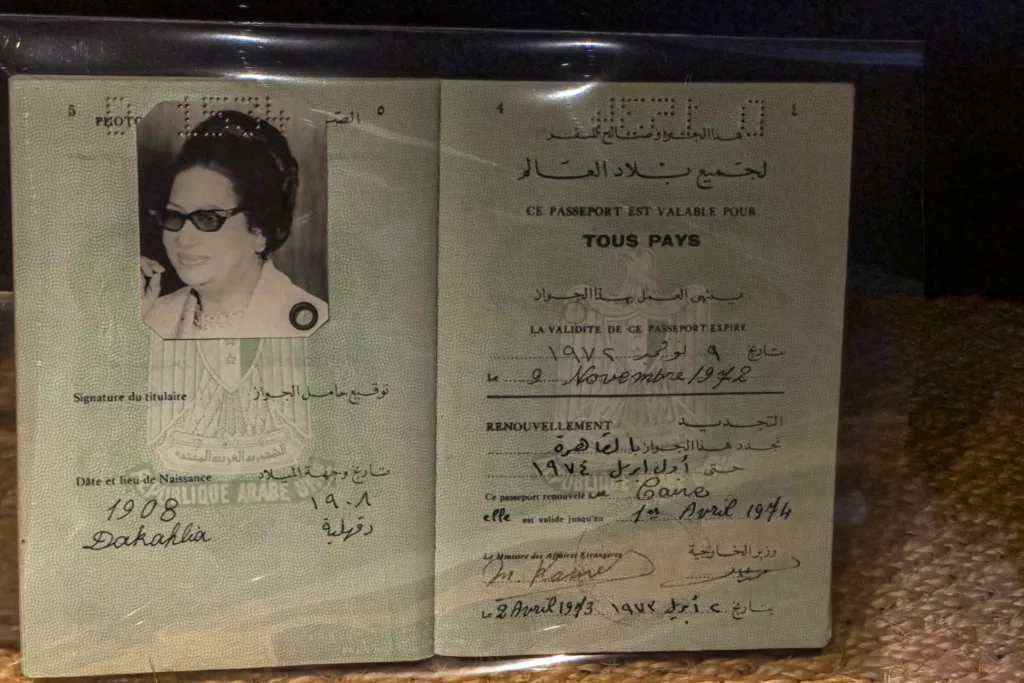 5 PHOTO ٥
Signature du titulaire توقيع حامل الجواز
الجمهورية العربية المتحدة
Dâte et lieu de Naissance تاريخ وجهة الميلاد
PUBLIQUE ARABE
1908 ١٩٠٨
Dakahlia دقهلية
4 ٤
هذا الجواز صالح للسفر
لجميع بلاد العالم
CE PASSEPORT EST VALABLE POUR
TOUS PAYS
ينتهى العمل بهذا الجواز
LA VALIDITE DE CE PASSEPORT EXPIRE
بتاريخ ٩ نوفمبر ١٩٧٢
Le 9 Novembre 1972
RENOUVELLEMENT التجديد
تجدد هذا الجواز بالقاهرة
حتى أول ابريل ١٩٧٤
Ce passeport renouvelé Caire
elle est valide jusqu'au 1er Avril 1974
Le Ministre des Affaires Etrangères وزير الخارجية
Le 2 Avril 1973 بتاريخ ٢ أبريل ١٩٧٣